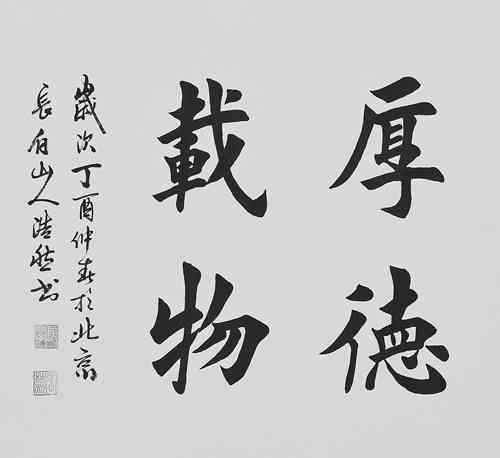 厚德
載物
歲次丁酉仲春於北京
長白山人浩然书